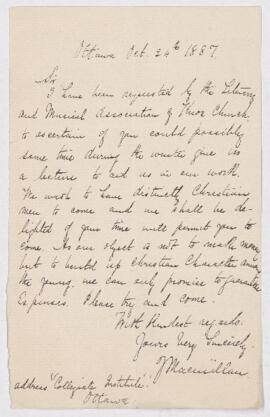 Ottawa Oct. 24th 1887.
Sir
I have been requested by the Literary
and Musical Association of Knox Church
to ascertain if you could possibly
some time during the winter give us
a lecture to aid us in our work.
We wish to have distinctly Christian
men to come and we shall be de-
lighted if your time will permit you to
come. As our object is not to make money
but to build up Christian Character among
the young, we can only promise to guarantee
Expenses. Please try and come.
With kindest regards.
Yours Very Sincerely
J Macmillan
address "Collegiate Institute".
Ottawa.